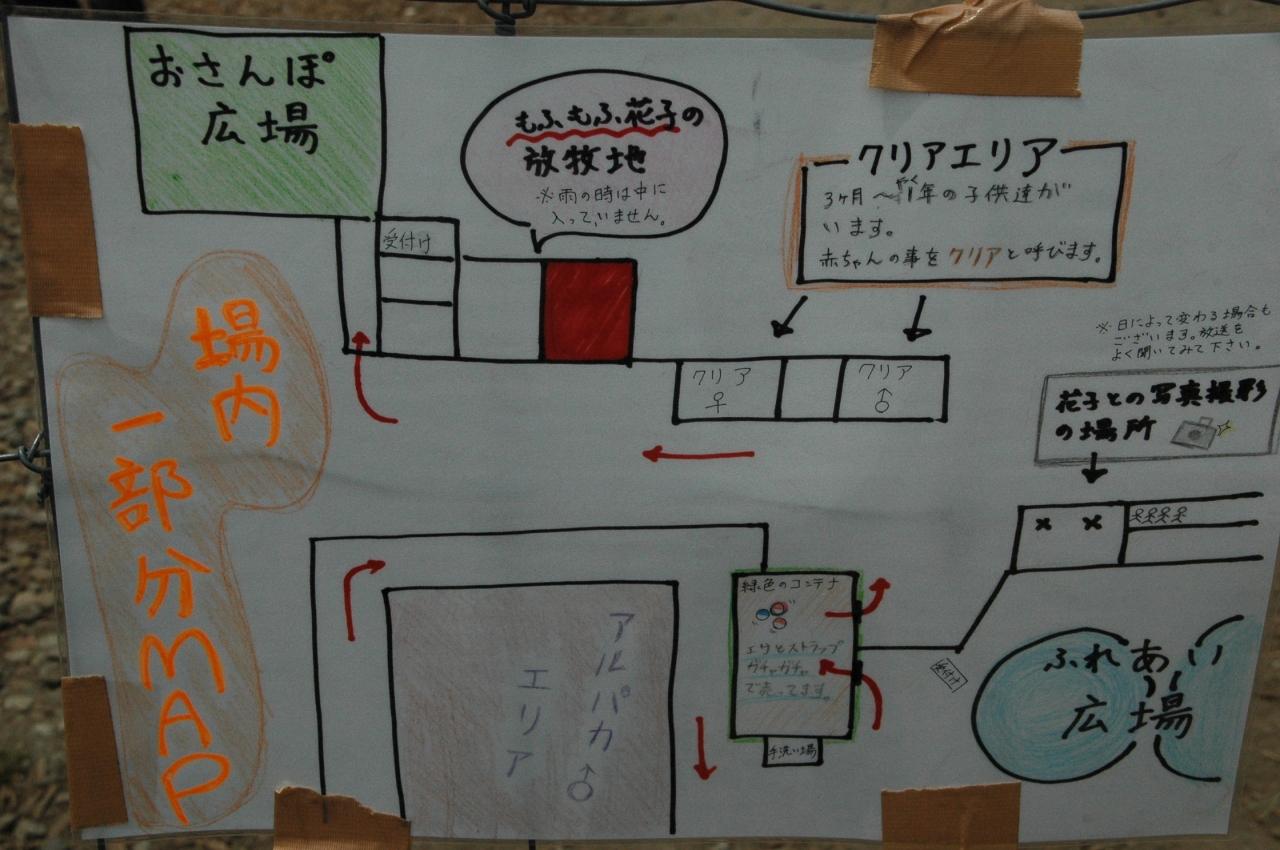 おさんぽ
広場
受付け
もふもふ花子の
放牧地
※雨の時は中に
入っていません。
クリアエリア
3ヶ月〜1年の子供達が
います。
赤ちゃんの事をクリアと呼びます。
クリア
♀
クリア
♂
※日によって変わる場合も
ございます。放送を
よく聞いてみて下さい。
花子との写真撮影
の場所
場内
一部分MAP
アルパカ♂
エリア
緑色のコンテナ
エサとストラップ
ガチャガチャ
で売ってます。
手洗い場
受付け
ふれあい
広場